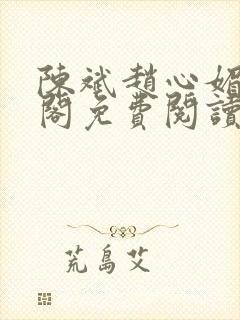 陳斌趙心媚
閣免費閱讀
荒島艾